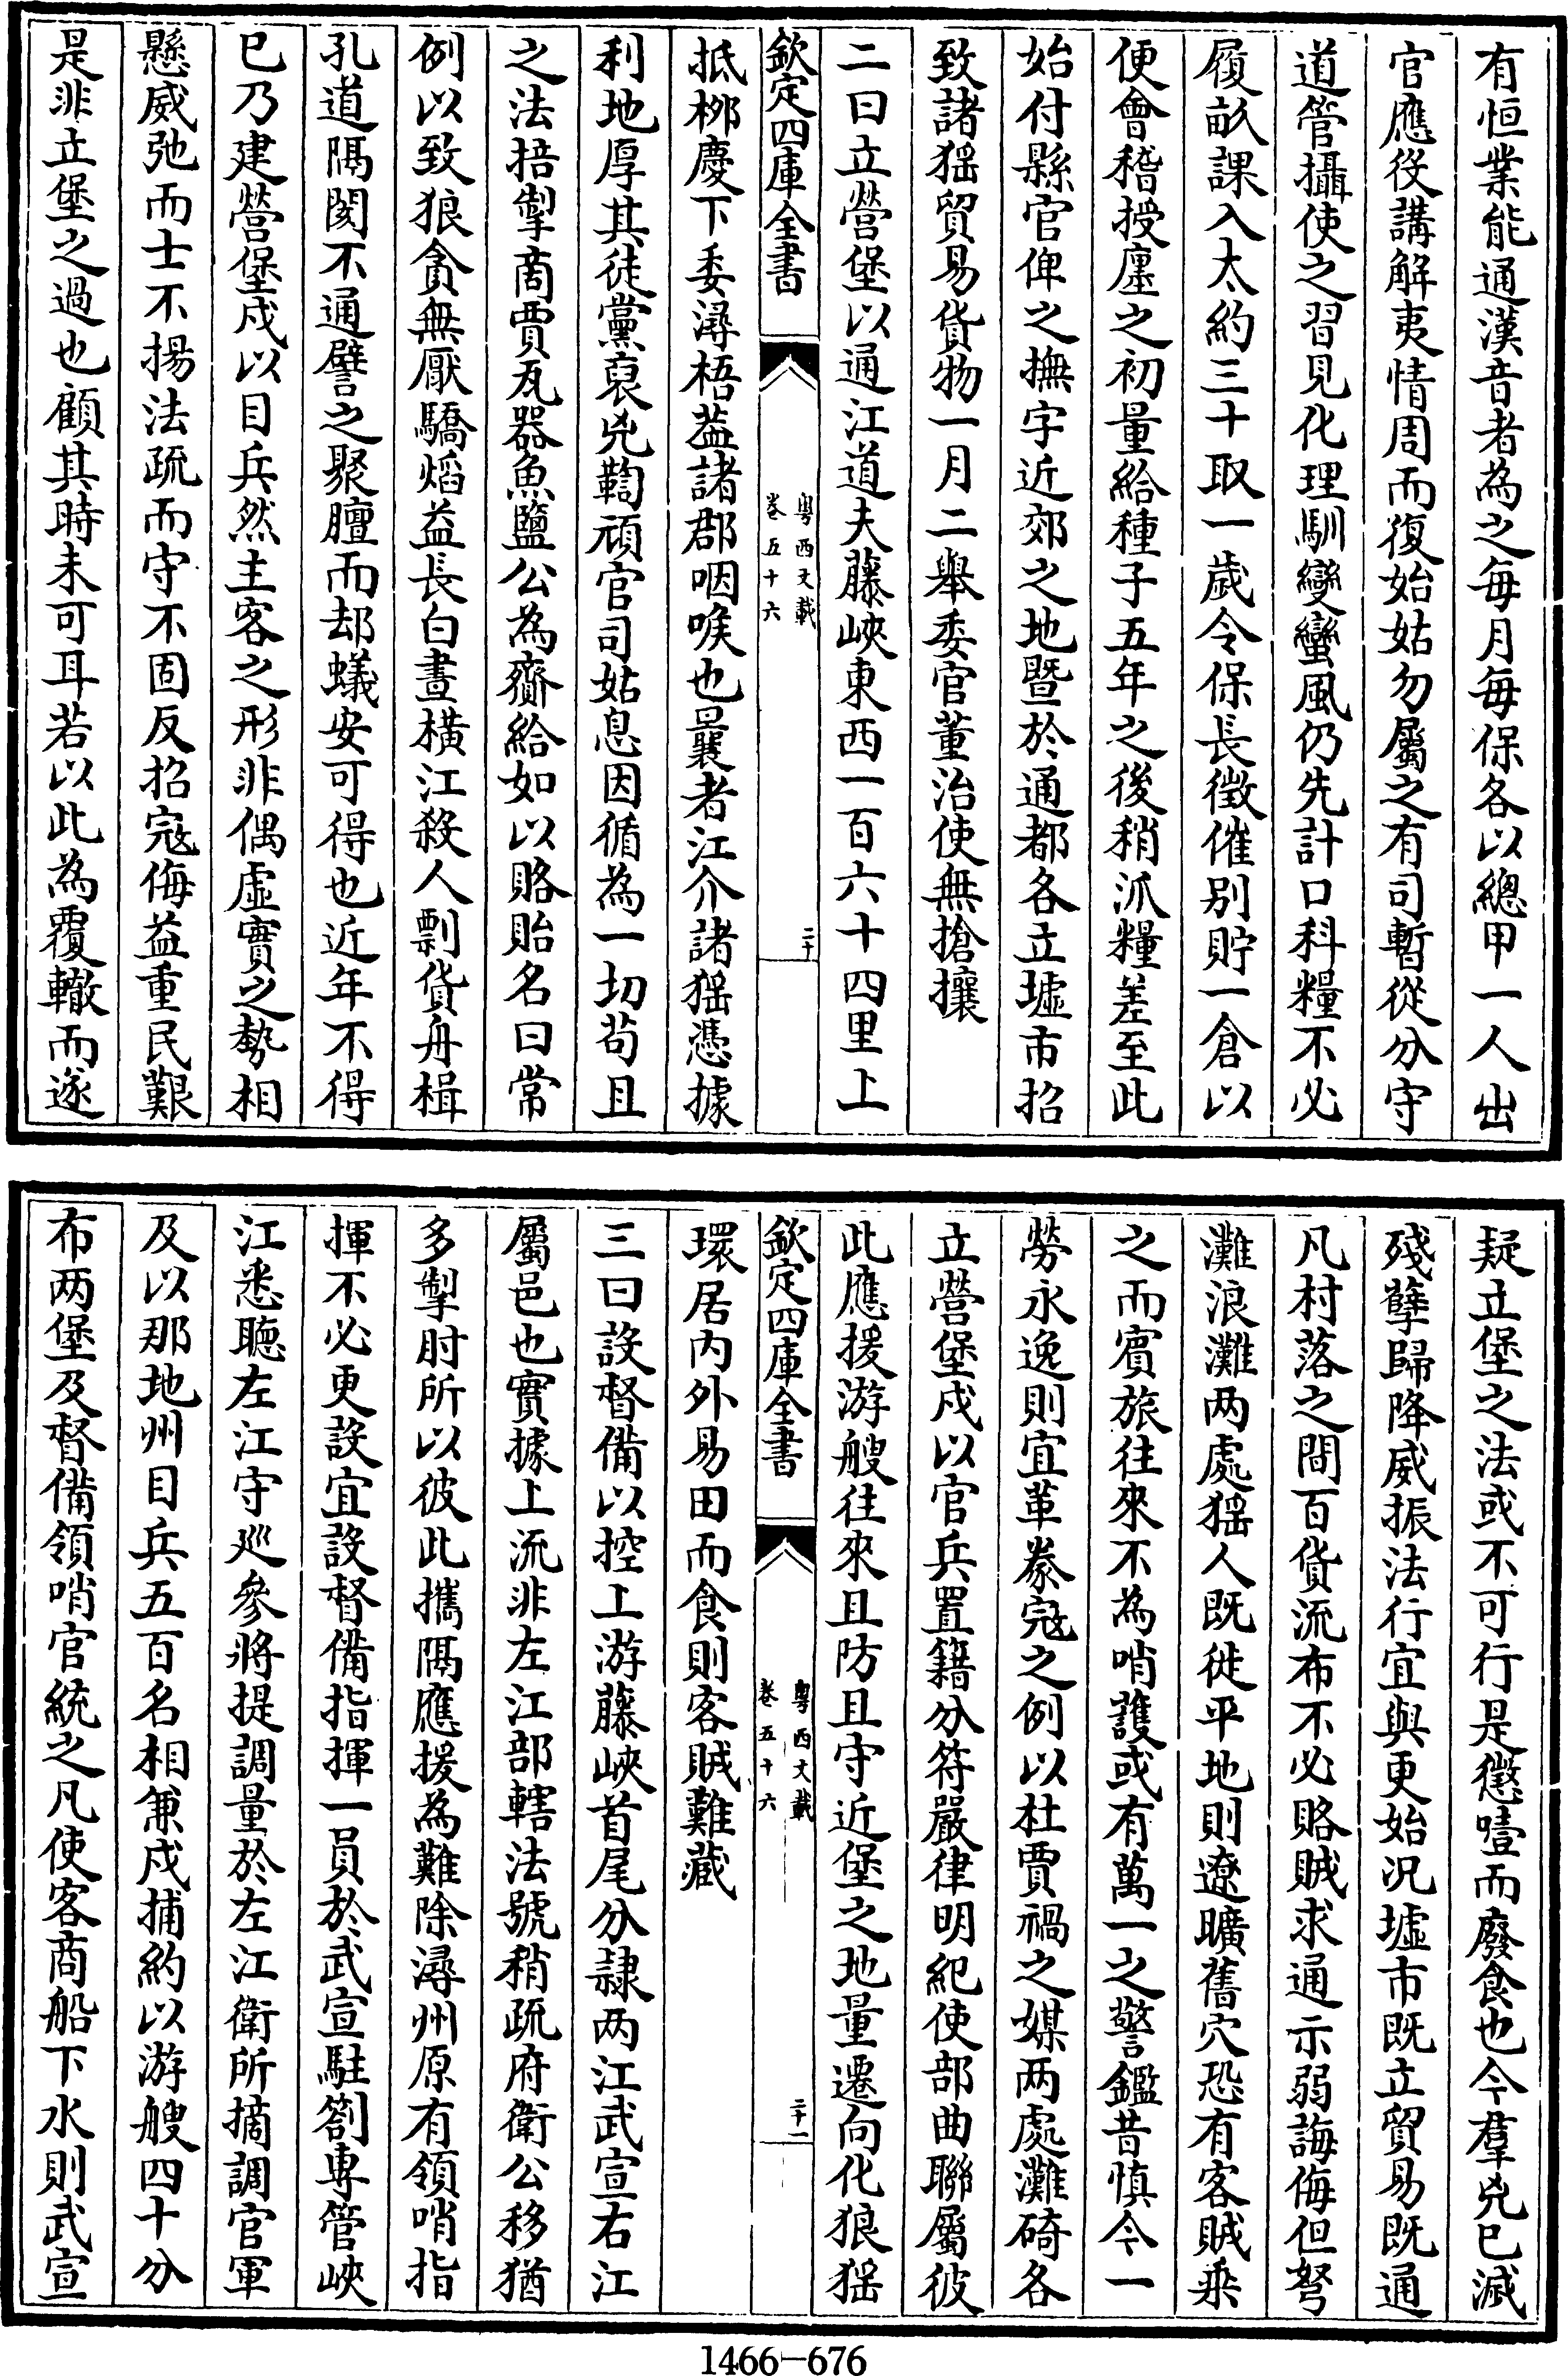 有恒業能通漢音者為之每月每保各以總甲一人出
官應役講解夷情周而復始姑勿屬之有司暫從分守
道管攝使之習見化理馴變蠻風仍先計口科糧不必
履畝課入大約三十取一歲令保長徵催别貯一倉以
便會稽授廛之初量給種子五年之後稍派糧差至此
始付縣官俾之撫字近郊之地暨於通都各立墟市招
致諸猺貿易貨物一月二舉委官董治使無搶攘
二曰立營堡以通江道夫藤峽東西一百六十四里上
欽定四庫全書
粤西文載
卷五十六
二十
抵栁慶下委潯梧葢諸郡咽喉也曩者江介諸猺憑據
利地厚其徒黨裒兇鞫頑官司姑息因循為一切茍且
之法掊掣商賈瓦器魚鹽公為齎給如以賂貽名曰常
例以致狼貪無厭驕熖益長白晝横江殺人剽貨舟楫
孔道隔閡不通譬之聚膻而却蟻安可得也近年不得
已乃建營堡戍以目兵然主客之形非偶虚實之勢相
懸威弛而士不揚法疏而守不固反招冦侮益重民艱
是非立堡之過也顧其時未可耳若以此為覆轍而遂
疑立堡之法或不可行是懲噎而廢食也今羣兇已滅
殘孽歸降威振法行宜與更始况墟市既立貿易既通
凡村落之間百貨流布不必賂賊求通示弱誨侮但弩
灘浪灘两處猺人既徙平地則遼曠舊穴恐有客賊乘
之而賓旅往來不為哨護或有萬一之警鑑昔慎今一
勞永逸則宜革豢冦之例以杜賈禍之媒两處灘碕各
立營堡戍以官兵置籍分符嚴律明紀使部曲聯屬彼
此應援游艘往來且防且守近堡之地量遷向化狼猺
欽定四庫全書
粤西文載
卷五十六
二十一
環居内外易田而食則客賊難藏
三曰設督備以控上游藤峽首尾分隷两江武宣右江
屬邑也實據上流非左江部轄法號稍疏府衛公移猶
多掣肘所以彼此攜隔應援為難除潯州原有領哨指
揮不必更設宜設督備指揮一員於武宣駐劄專管峽
江悉聽左江守廵參將提調量於左江衛所摘調官軍
及以那地州目兵五百名相兼戍捕約以游艘四十分
布两堡及督備領哨官統之凡使客商船下水則武宣
1466-676